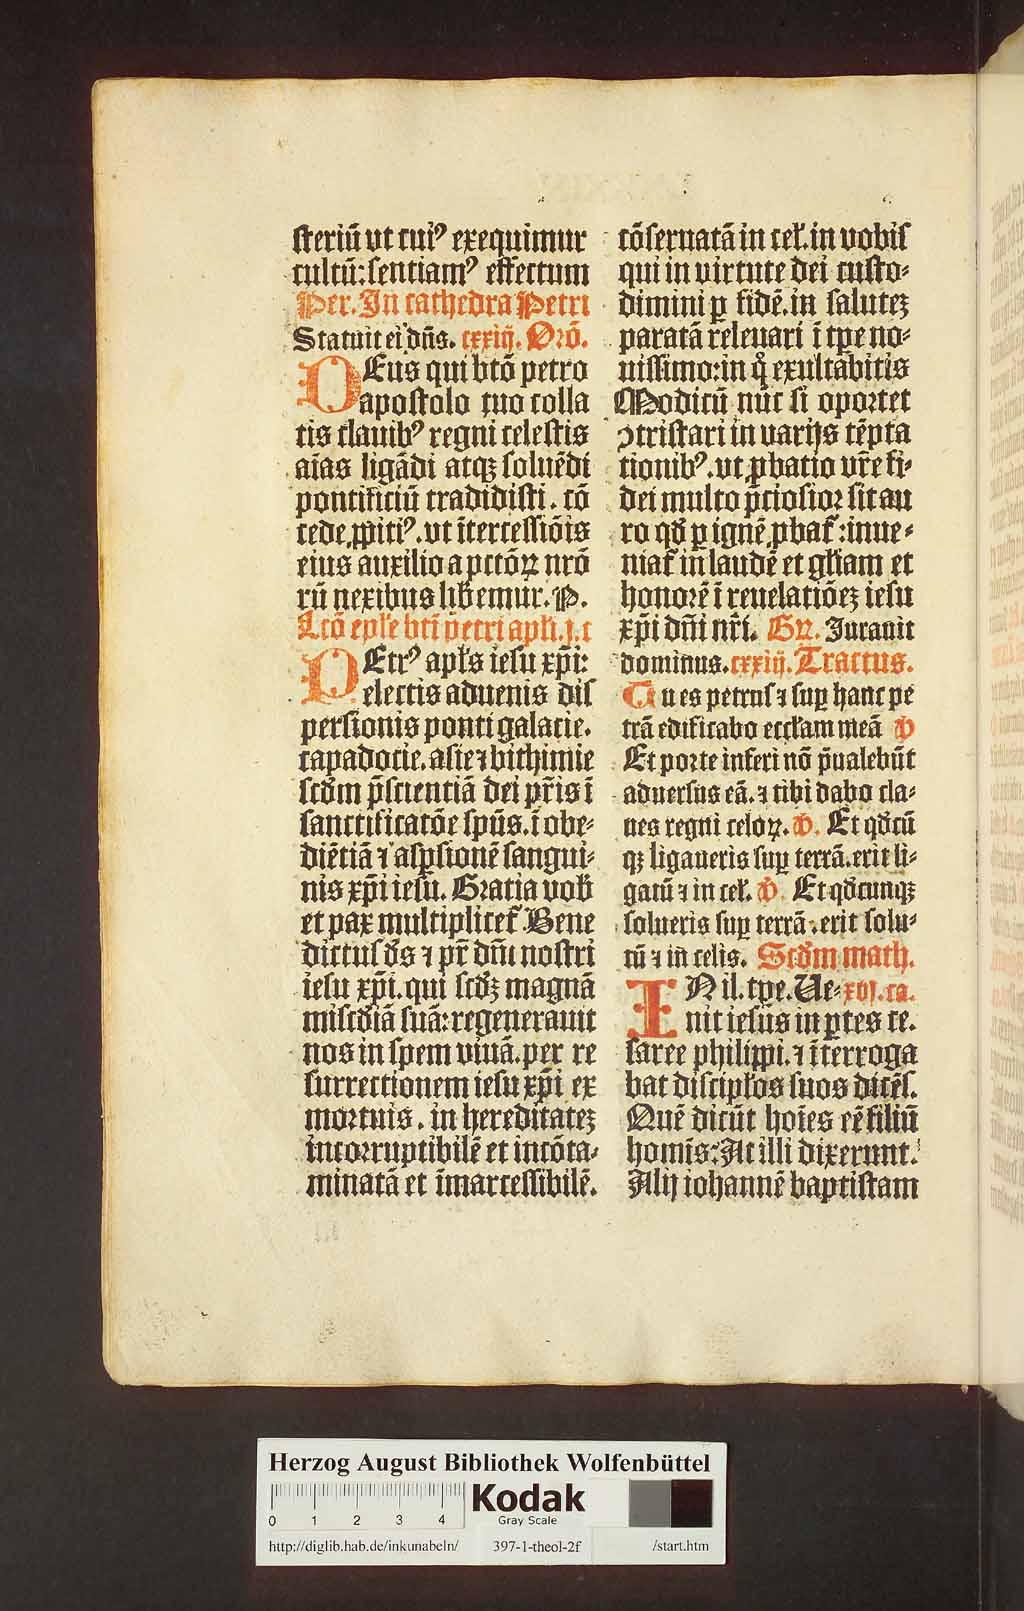 steriū ut tuiꝰ exequimur
cultū: sentiamꝰ effectum
Per. In cathedra Petri
Statuit ei dn̄s. cxxiij. Orō.
DEus qui btō petro
apostolo tuo colla
tis clauibꝰ regni celestis
aīas ligādi atqꝫ soluēdi
pontificiū tradidisti. cō
cede ꝓpitiꝰ. ut ītercessiōis
eius auxilio a pctōꝝ nrō
rū nexibus lib̄emur. P.
Lcō ep̄le bti p̄etri apl̄i. j. c
PEtrꝰ apl̄s iesu xp̄i:
electis aduenis dis
persionis ponti galacie.
capadocie. asie ⁊ bithimie
scd̄m p̄scientiā dei pr̄is ī
sanctificatōe spūs. ī obe-
diētiā ⁊ aspsionē sangui-
nis xp̄i iesu. Gratia vob̄
et pax multiplicet᷑. Bene
dictus ds̄ ⁊ pr̄ dn̄i nostri
iesu xp̄i. qui scd̄ꝫ magnā
miscd̄iā suā: regenerauit
nos in spem viuā. per re
surrectionem iesu xp̄i ex
mortuis. in hereditateꝫ
incorruptibilē et incōta-
minatā et īmarcessibilē.
cōseruatā in cel̄. in vobis
qui in uirtute dei custo-
dimini ꝑ fidē. in saluteꝫ
paratā releuari ī tp̄e no-
uissimo: in q̊ exultabitis
Modicū nūc si oportet
ꝯtristari in varijs tēpta
tionibꝰ. ut ꝓbatio vr̄e fi-
dei multo p̄ciosior sit au
ro qd̄ ꝑ ignē ꝓbat᷑: inue-
niat᷑ in laudē et gl̄iam et
honorē ī reuelatiōeꝫ iesu
xp̄i dn̄i nr̄i. Gꝛ. Iurauit
dominus. cxxiij. Tractus.
Tu es petrus ⁊ sup̄ hanc pe
trā edificabo eccl̄am meā ℣
Et porte inferi nō p̄ualebūt
aduersus eā. ⁊ tibi dabo cla-
ues regni celoꝝ. ℣. Et qd̄cū
qꝫ ligaueris sup̄ terrā. erit li-
gatū ⁊ in cel̄. ℣. Et qd̄cunqꝫ
solueris sup̄ terrā. erit solu-
tū ⁊ in celis. Scd̄m math.
IN il. tp̄e. Ue- xvj. ca.
nit iesūs in ꝑtes ce.
saree philippi. ⁊ īterroga
bat discipl̄os suos dicēs.
Quē dicūt hoīes eē filiū
homīs: At illi dixerunt.
Alij iohannē baptistam
Herzog August Bibliothek Wolfenbüttel
0 1 2 3 4
Kodak
Gray Scale
http://diglib.hab.de/inkunabeln/ 397-1-theol-2f /start.htm